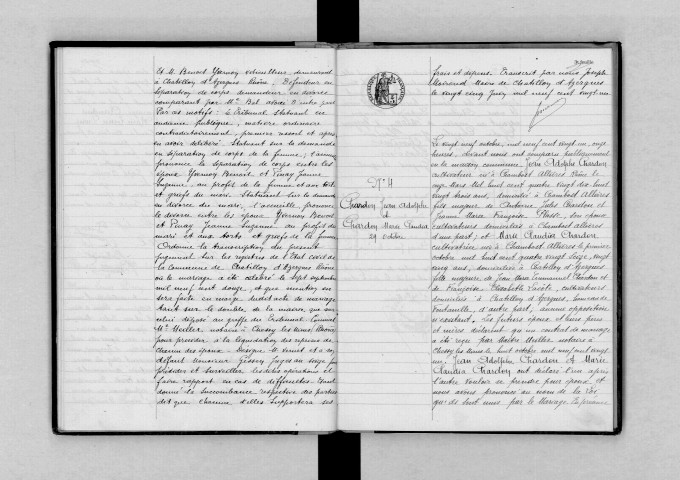 Et M. Benoit Yvernoy velocilleur, demeurant
à Chatillon d'Azergues Rhône, Défendeur en
séparation de corps demandeur en divorce
comparant par Me Bel avoué d'autre part
Par ces motifs : Le Tribunal Statuant en
audience publique, matière ordinaire
contradictoirement, premier ressort et après
en avoir délibéré. Statuant sur la demande
en séparation de corps de la femme ; l'accueille
prononce la séparation de corps entre les
époux Yvernoy Benoit et Pinay Jeanne
Suzanne, au profit de la femme et aux torts
et griefs du mari. Statuant sur la demande
en divorce du mari, l'accueille, prononce
le divorce entre les époux Yvernoy Benoit
et Pinay Jeanne Suzanne au profit du
mari et aux torts et griefs de la femme
Ordonne la transcription du présent
jugement sur les registres de l'Etat civil de
la Commune de Chatillon d'Azergues Rhône
où le mariage a été célébré le sept septembre
mil neuf cent douze, et que mention en
sera faite en marge dudit acte de mariage
tant sur le double, de la mairie, que sur
celui déposé au greffe du Tribunal. Commet
Me Muller, notaire à Chessy les Mines Rhône
pour procéder à la liquidation des reprises de
chacun des époux. Désigne le Yernet et à son
défaut Monsieur Juge au siège pour
présider et surveiller lesdites opérations et
faire rapport en cas de difficultés. Et
donné la succombance respective des parties
dit que chacune d'elles supportera ses
frais et dépens. Transcrit par nous Joseph
Maire de Chatillon d'Azergues
le vingt cinq Juin mil neuf cent vingt un
N° 4
Chardon Jean Adolphe
et
Chardon Marie Claudia
29 octobre
Le vingt neuf octobre, mil neuf cent vingt un, onze
heures, devant nous ont comparu publiquement
en la maison commune : Jean Adolphe Chardon
cultivateur né à Chambost Allières Rhône le
onze Mars mil huit cent quatre vingt dix huit
vingt trois ans, domicilié à Chambost Allières
fils majeur de Antoine Jules Chardon et
Jeanne Marie Françoise Plasse, son épouse
cultivateurs domiciliés à Chambost Allières
d'une part ; et Marie Claudia Chardon
cultivatrice née à Chambost Allières le premier
octobre mil huit cent quatre vingt seize, vingt
cinq ans, domiciliée à Chatillon d'Azergues
fille majeure de Jean Marie Emmanuel Chardon et
de Françoise Elisabeth cultivateurs
domiciliés à Chatillon d'Azergues, hameau de
d'autre part ; aucune opposition
n'existant. Les futurs époux et leurs pères
et mères déclarent qu'un contrat de mariage
a été reçu par Maître Muller notaire à
Chessy les Mines le huit octobre mil neuf cent vingt
un. Jean Adolphe Chardon et Marie
Claudia Chardon ont déclaré l'un après
l'autre vouloir se prendre pour époux et
nous avons prononcé au nom de la loi
qu'ils sont unis par le mariage. En présence